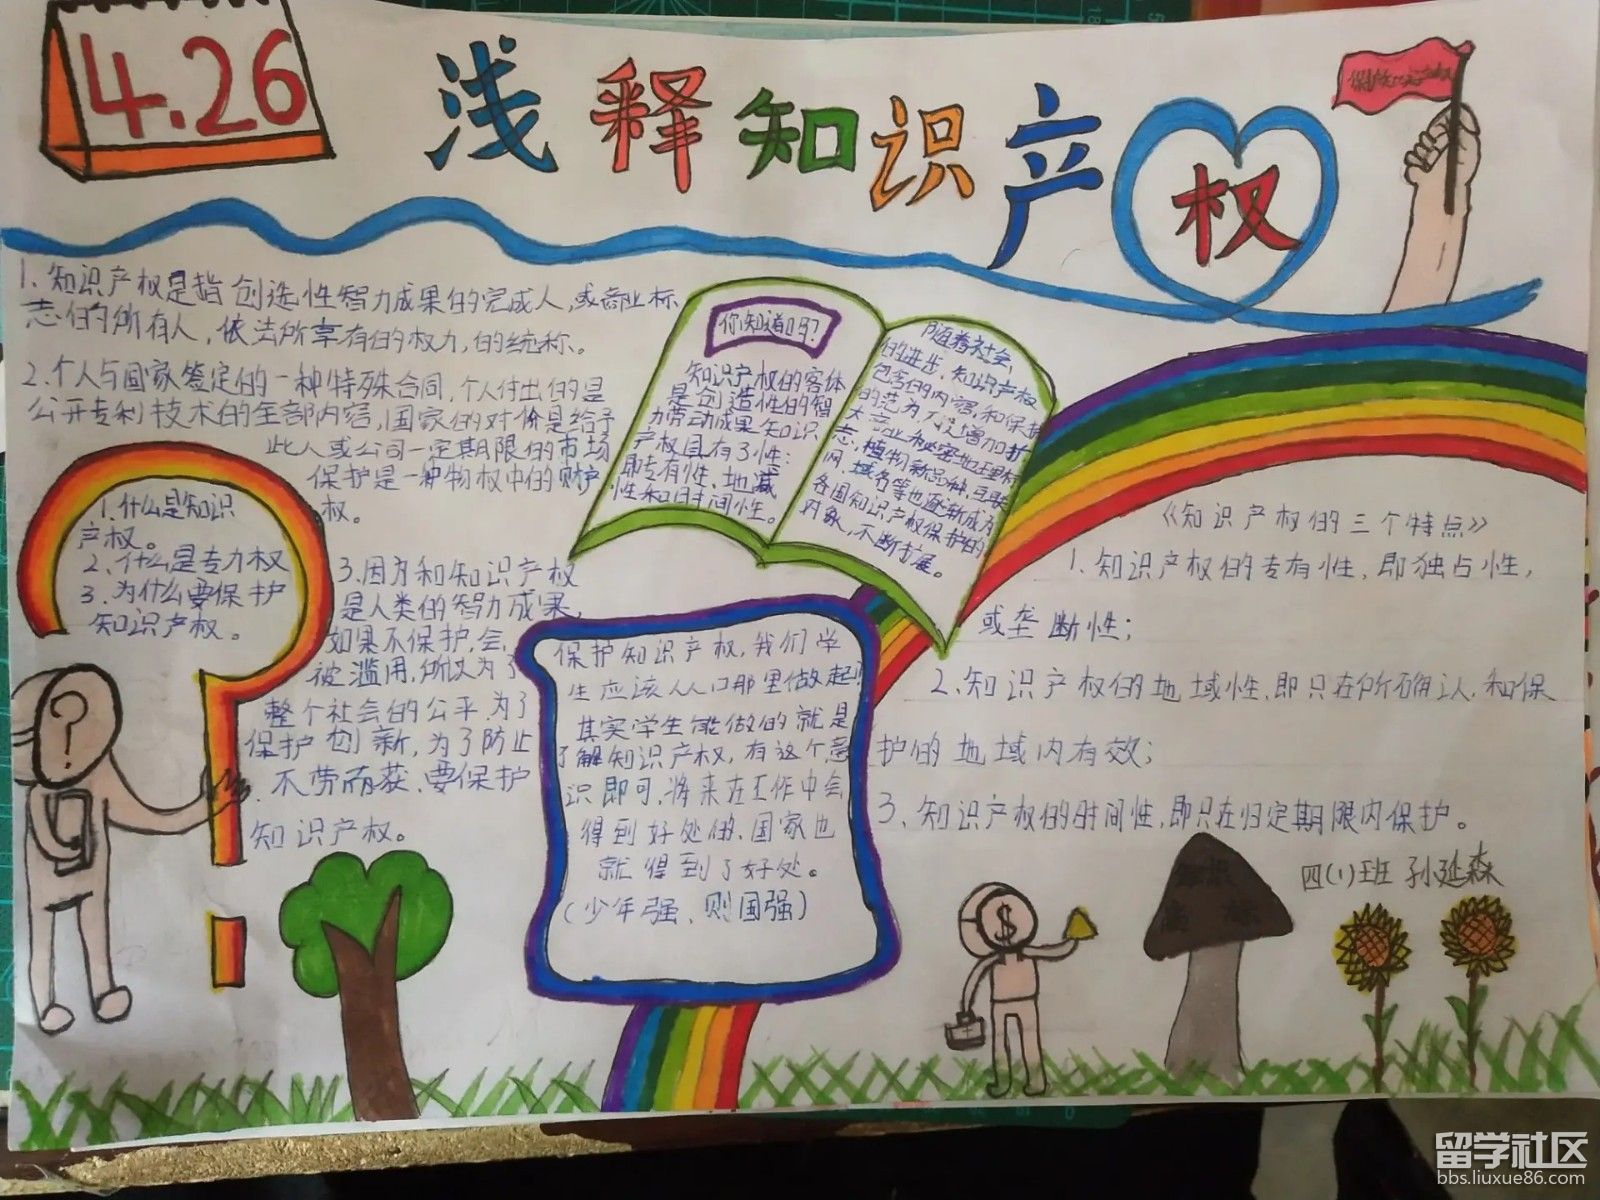 4.26
浅释知识产权
1.知识产权是指创造性智力成果的完成人,或商业标
志的所有人,依法所享有的权力,的统称。
2.个人与国家签定的一种特殊合同,个人付出的是
公开专利技术的全部内容,国家的对价是给予
此人或公司一定期限的市场
保护是一种物权中的财产
权。
1.什么是知识
产权。
2.什么是专力权
3.为什么要保护
知识产权。
3.因为和知识产权
是人类的智力成果,
如果不保护,会
被滥用,所以为了
整个社会的公平,为了
保护创新,为了防止
不劳而获,要保护
知识产权。
你知道吗?
知识产权的客体
是创造性的智
力劳动成果知识
产权具有了性:
即专有性、地减
性和时间性。
随着社会
的进步,知识产权
包含的内容,和保护
的范为不断增加扩
大商业秘密地理标
志,植物新品种,互联
网,域名等也逐渐成为
各国知识产权保护的
对象,不断扩展。
保护知识产权,我们学
生应该从那里做起
其实学生能做的就是
了解知识产权,有这个意
识即可,将来在工作中会
得到好处的、国家也
就得到了好处。
(少年强、则国强)
《知识产权的三个特点》
1.知识产权的专有性,即独占性,
或垄断性;
2.知识产权的地域性,即只在所确认,和保
护的地域内有效;
3.知识产权的时间性,即只在归定期限内保护。
四(1)班 孙延森
$
留学社区
bbs.liuxue86.com